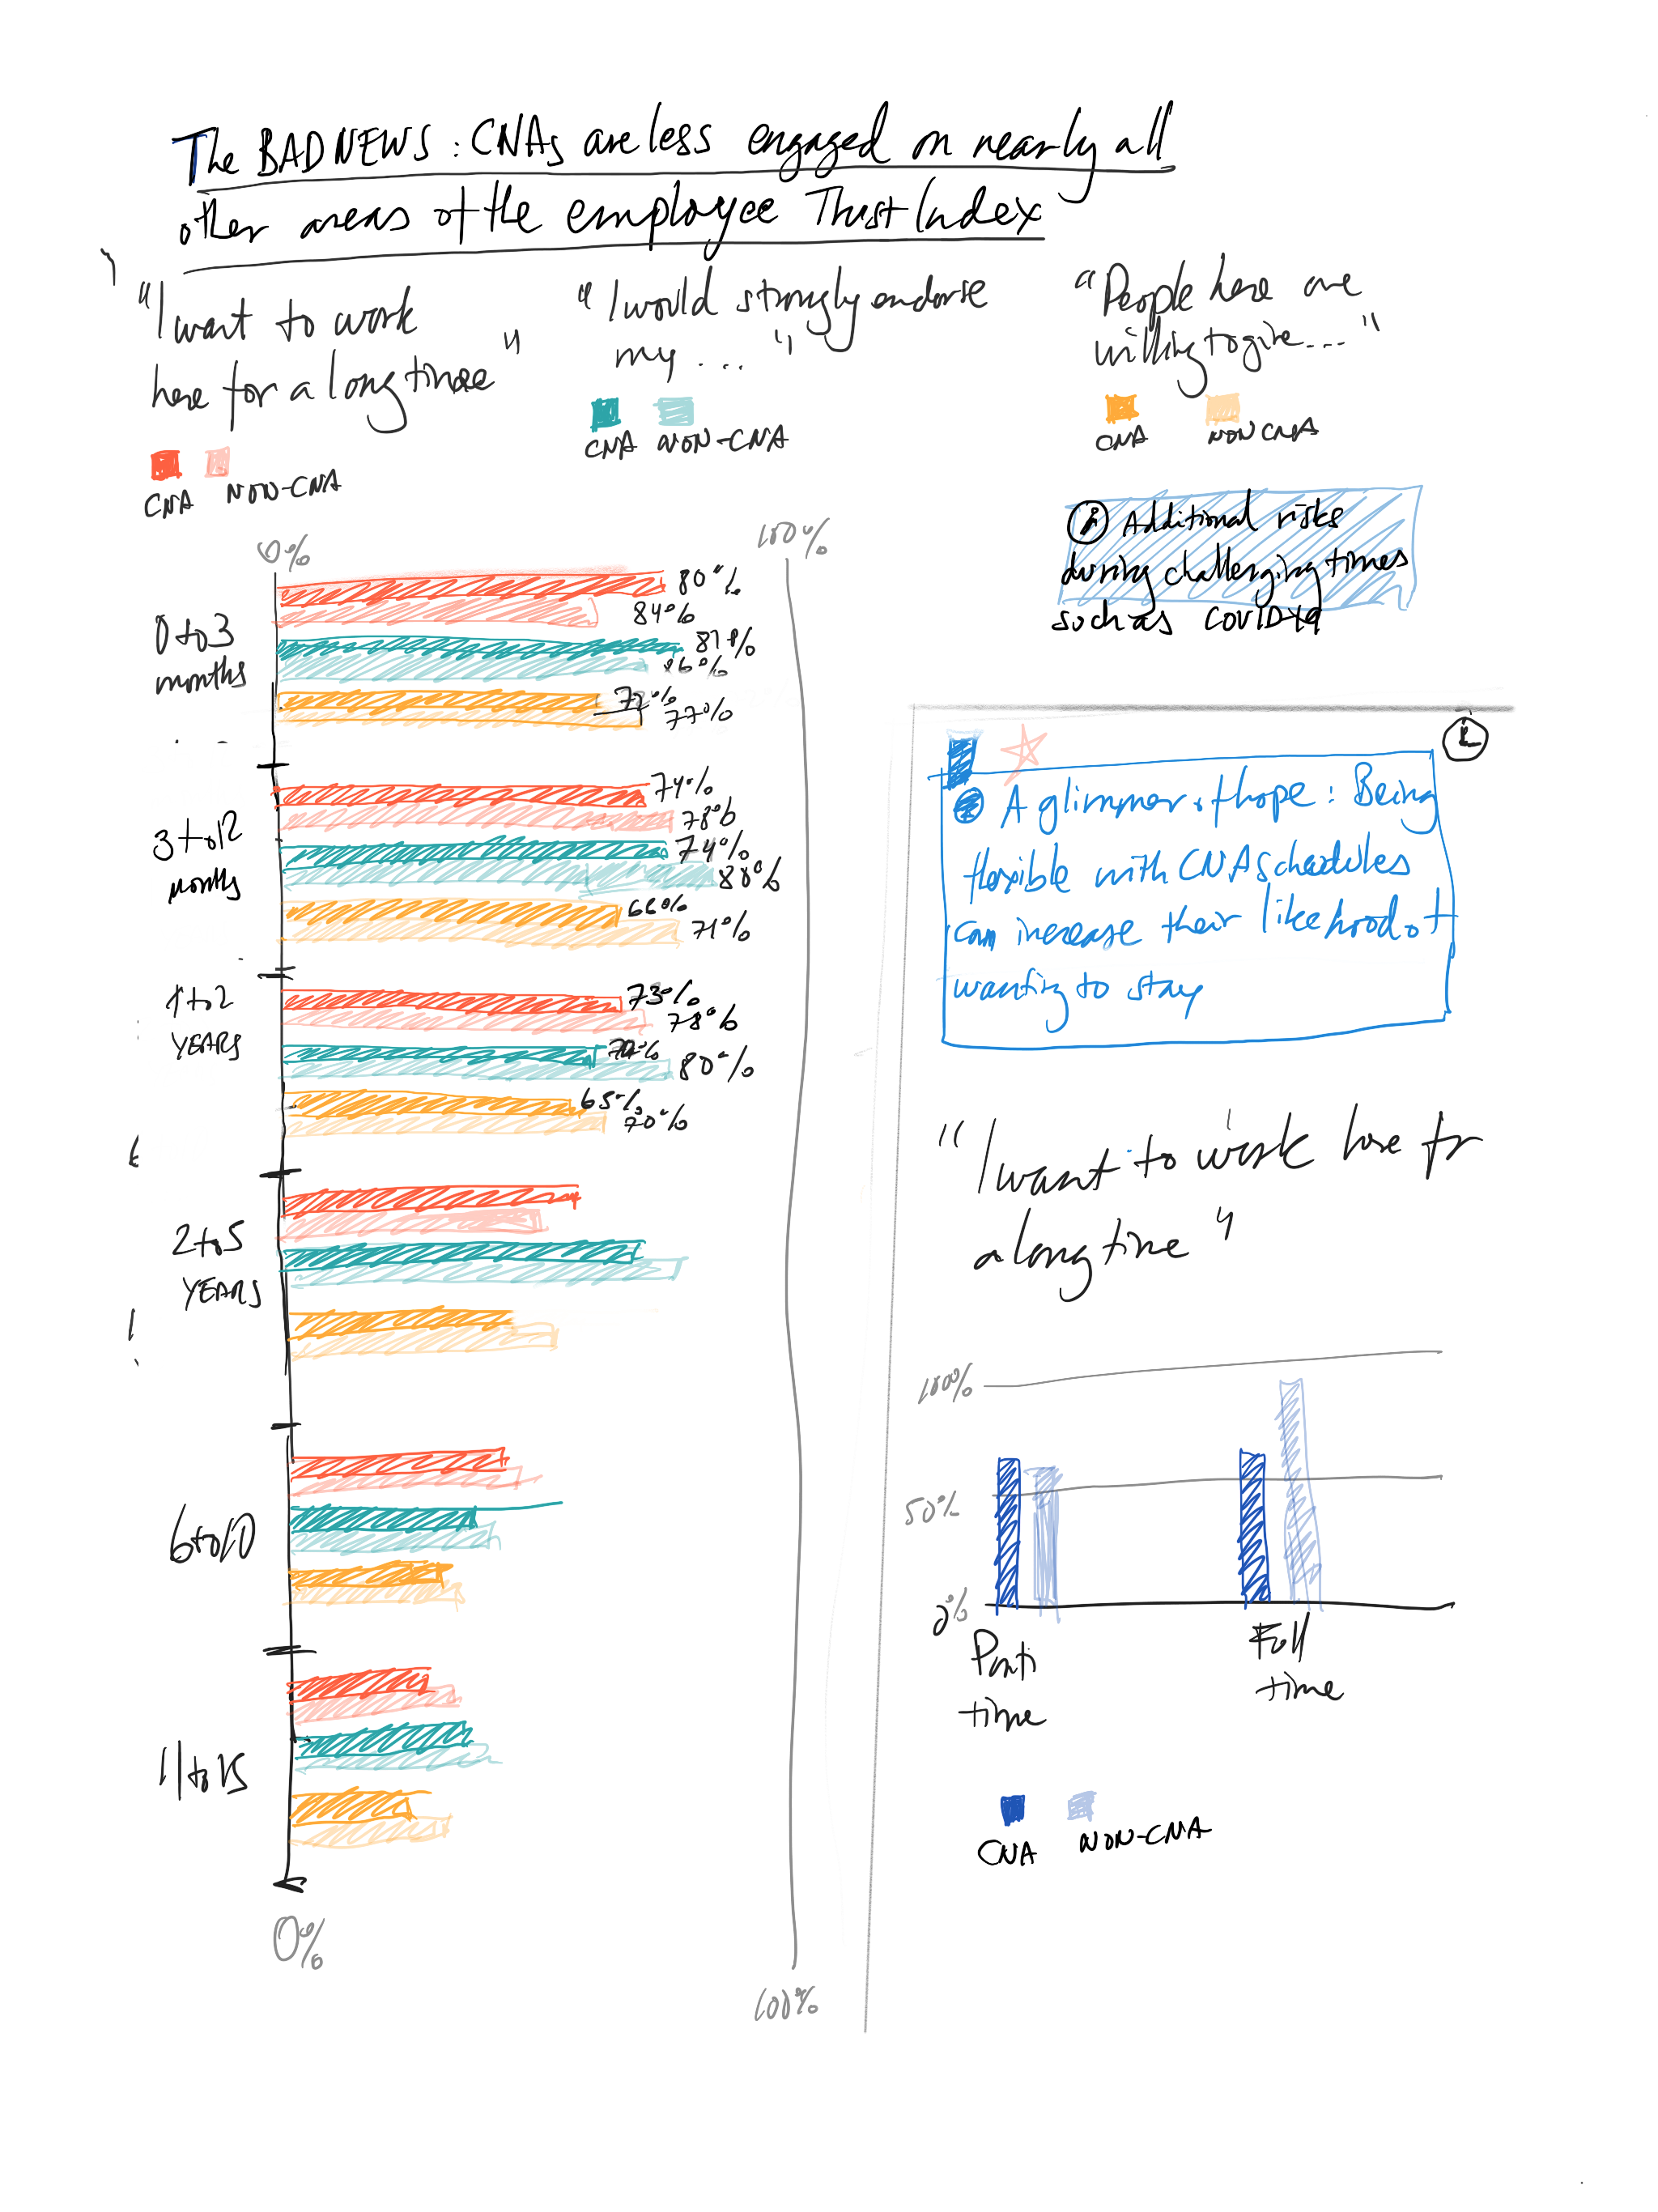 The BAD NEWS : CNAs are less engaged on nearly all
other areas of the employee Trust Index
"I want to work
here for a long time"
CNA NON-CNA
"I would strongly endorse
my ... "
CNA NON-CNA
"People here are
willing to give...."
CNA NON CNA
Additional risks
during challenging times
such as COVID-19
0% 100%
0 to 3
months
80%
84%
81%
86%
72%
77%
3 to 12
months
74%
78%
74%
80%
66%
71%
1 to 2
YEARS
73%
78%
80%
65%
70%
2 to 5
YEARS
6 to 10
11 to 15
0%
100%
A glimmer of hope : Being
flexible with CNA schedules
can increase their likehood of
wanting to stay
"I want to work here for
a long time"
100%
50%
0%
Part
time
Full
time
CNA NON-CNA